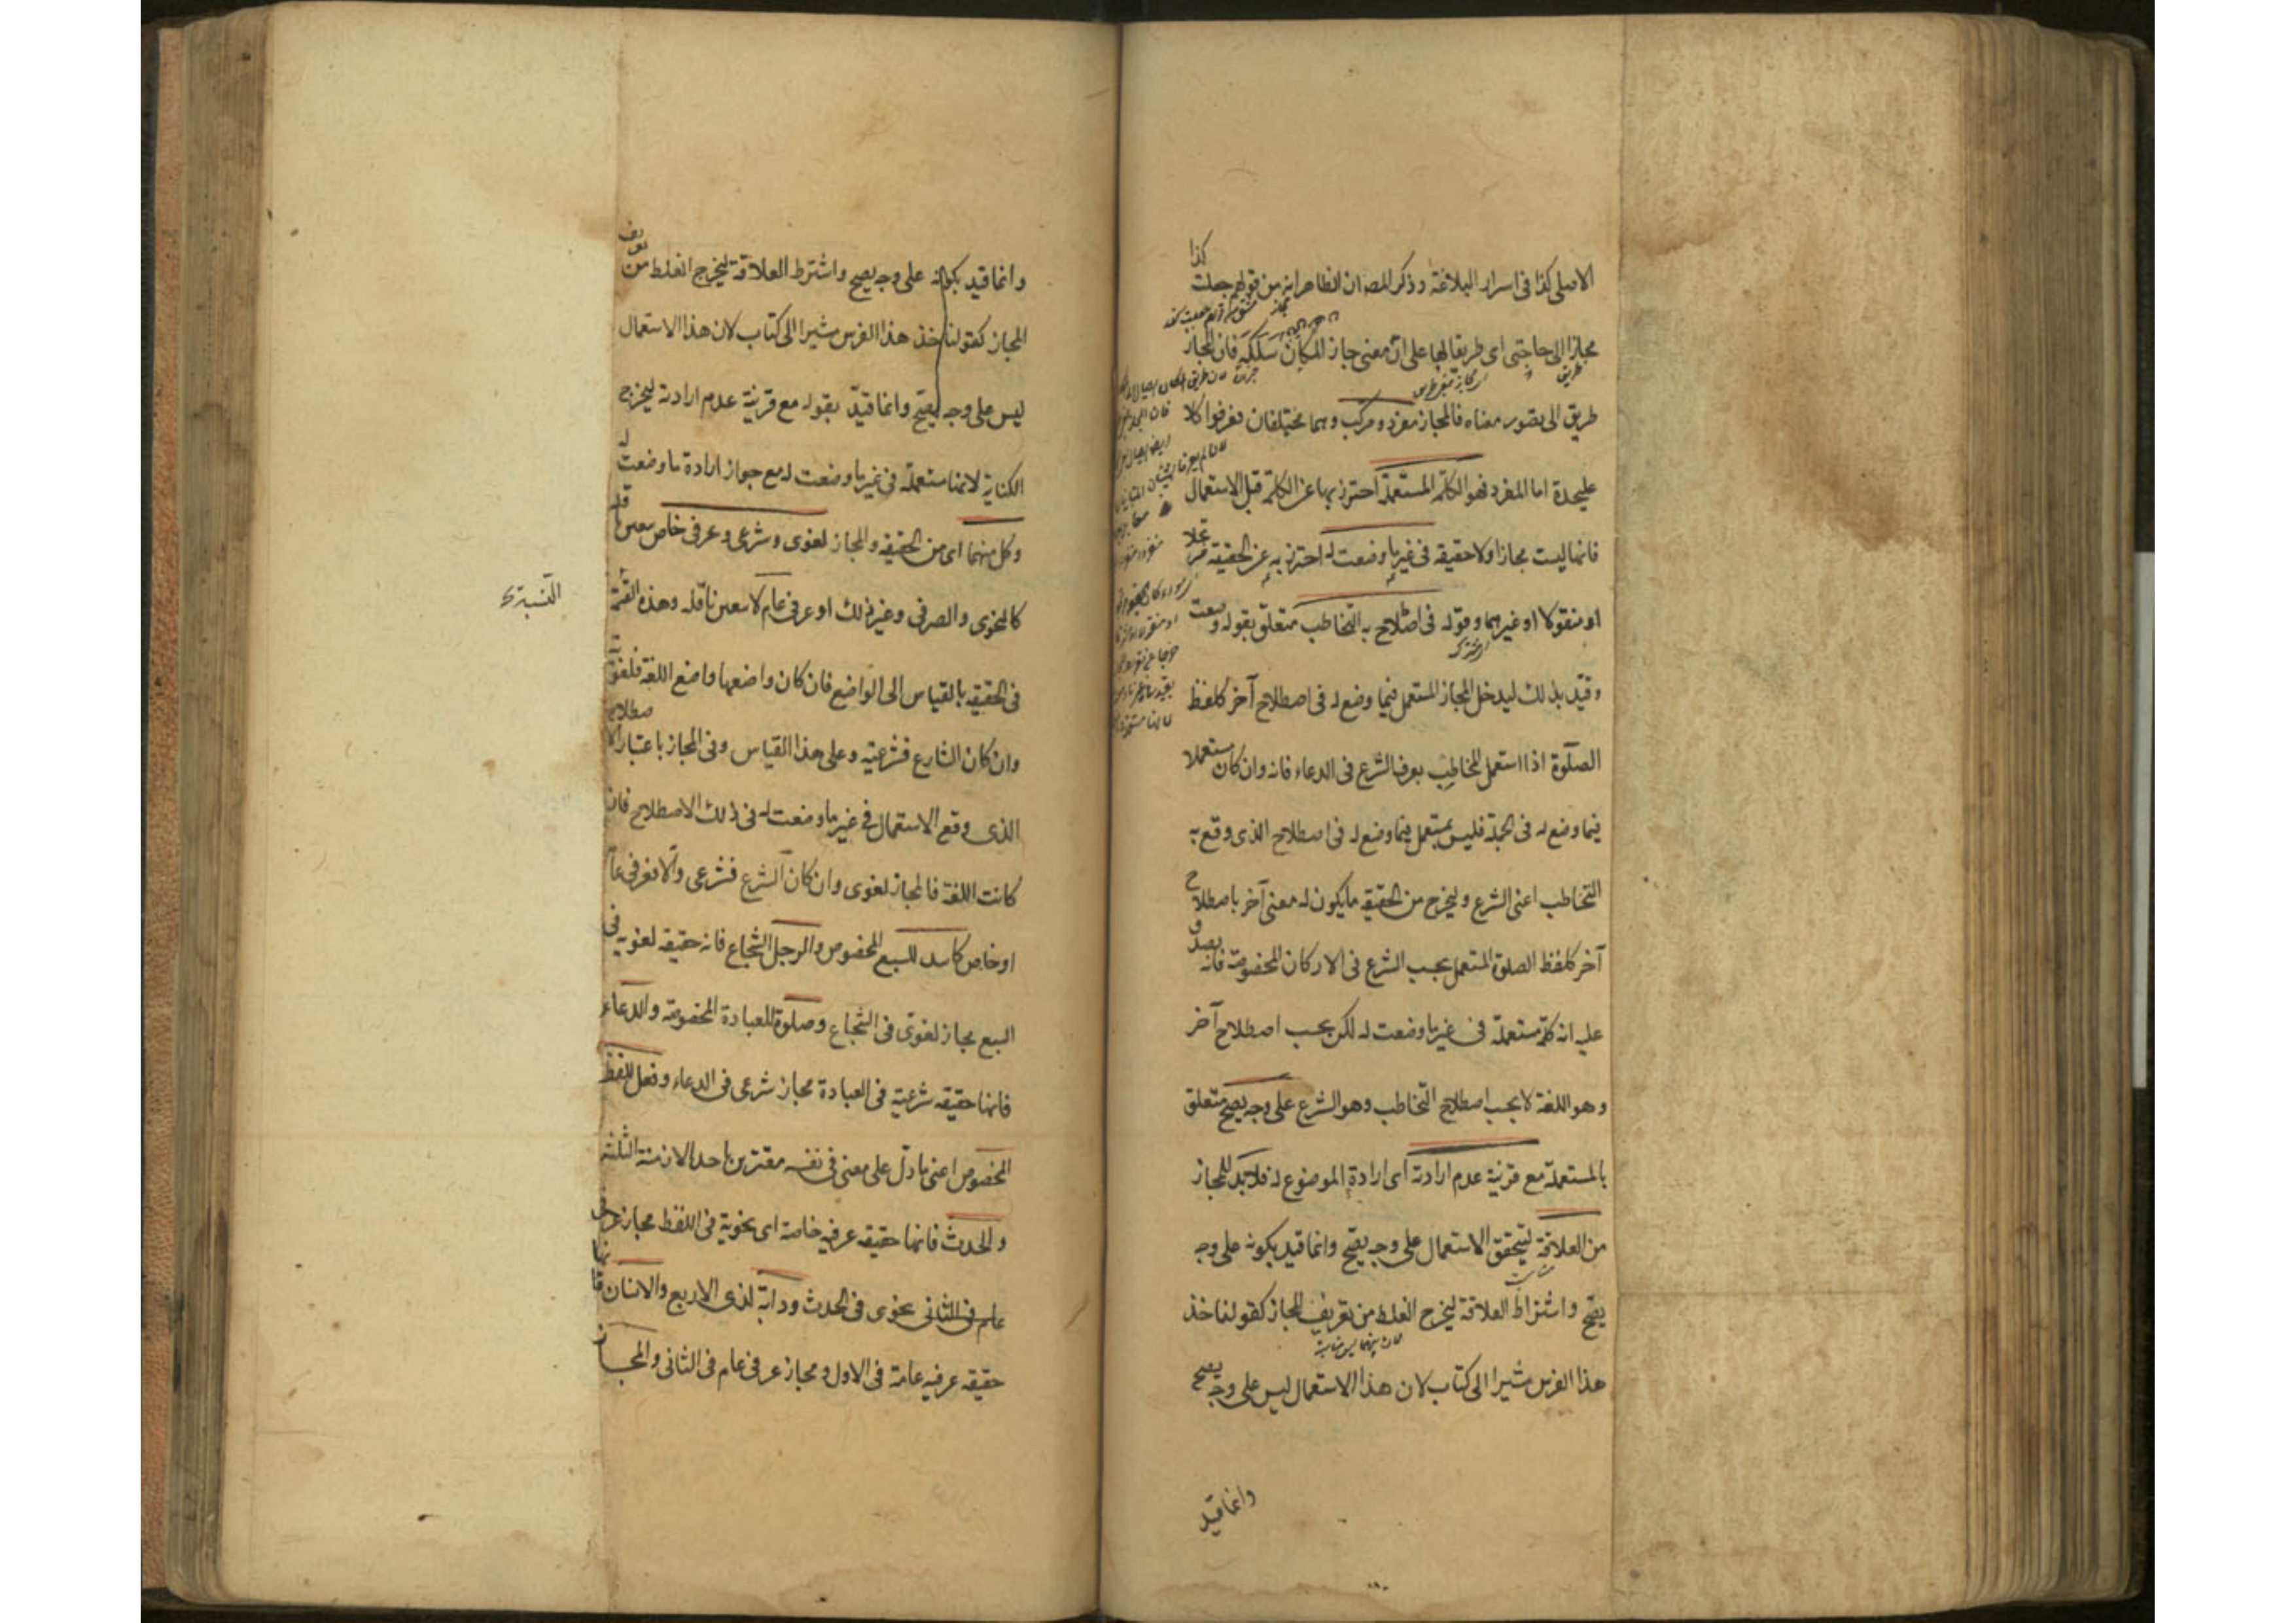 الاصلى كذا فى اسرار البلاغة وذكر المصـ ان الظاهر انه من قولهم جعلت كذا
مجازا الى حاجتى اى طريقا لها على ان معنى جاز المكان سلكه فان المجاز
طريق الى تصور معناه فالمجاز مفرد ومركب وهما مختلفان فعرفوا كلا
عليحدة اما المفرد فهو الكلمة المستعملة احترز بها عن الكلمة قبل الاستعمال
فانها ليست مجازا ولا حقيقه فى غير ما وضعت له احترز به عن الحقيقه مرتجلا
او منقولا او غيرهما وقوله فى اصطلاح به التخاطب متعلق بقوله وضعت
وقيد بذلك ليدخل المجاز المستعمل فيما وضع له فى اصطلاح آخر كلفظ
الصلوة اذا استعمل المخاطب بعرف الشرع فى الدعاء فانه وان كان مستعملا
فيما وضع له فى الجملة فليس بمستعمل فيما وضع له فى اصطلاح الذى وقع به
التخاطب اعنى الشرع وليخرج من الحقيقه ما يكون له معنى آخر باصطلاح
آخر كلفظ الصلوة المستعمل بحسب الشرع فى الاركان المخصوصة فانه يصدق
عليه انه كلمة مستعملة فى غير ما وضعت له لكن بحسب اصطلاح آخر
وهو اللغة لا بحسب اصطلاح التخاطب وهو الشرع على وجه يصح متعلق
بالمستعملة مع قرينة عدم ارادته اى ارادة الموضوع له فلابد للمجاز
من العلاقة ليتحقق الاستعمال على وجه يصح وانما قيد بكونه على وجه
يصح واشتراط العلاقة ليخرج الغلط من تعريف المجاز كقولنا خذ
هذا الفرس مشيرا الى كتاب لان هذا الاستعمال ليس على وجه يصح
وانما قيد
وانما قيد بكونه على وجه يصح واشترط العلاقة ليخرج الغلط من تعريف
المجاز كقولنا خذ هذا الفرس مشيرا الى كتاب لان هذا الاستعمال
ليس على وجه يصح وانما قيد بقوله مع قرينة عدم ارادته ليخرج
الكناية لانها مستعملة فى غير ما وضعت له مع جواز ارادة ما وضعت له
وكل منهما اى من الحقيقه والمجاز لغوى وشرعى وعرفى خاص يتعين ناقله
كالنحوى والصرفى وغير ذلك او عرفى عام لا يتعين ناقله وهذه القسمة
النسبة
فى الحقيقه بالقياس الى الواضع فان كان واضعها واضع اللغة فلغوية
وان كان الشارع فشرعيه وعلى هذا القياس وفى المجاز باعتبار الاصطلاح
الذى وقع الاستعمال فى غير ما وضعت له فى ذلك الاصطلاح فان
كانت اللغة فالمجاز لغوى وان كان الشرع فشرعى والا فعرفى عام
او خاص كاسد للسبع المخصوص والرجل الشجاع فانه حقيقه لغويه فى
السبع مجاز لغوى فى الشجاع وصلوة للعبادة المخصوصة والدعاء
فانها حقيقه شرعية فى العبادة مجاز شرعى فى الدعاء وفعل للفظ
المخصوص اعنى ما دل على معنى فى نفسه مقترن باحد الازمنة الثلثه
والحدث فانها حقيقه عرفيه خاصة اى نحوية فى اللفظ مجاز عرفى
عام فى الثانى نحوى فى الحدث ودابة لذى الاربع والانسان فانها
حقيقه عرفيه عامة فى الاول ومجاز عرفى عام فى الثانى والمجاز